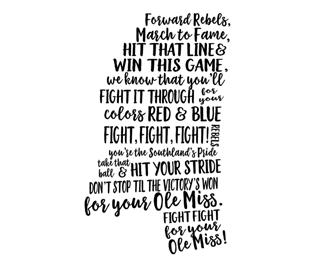 Forward Rebels,
March to Fame,
HIT THAT LINE &
WIN THIS GAME,
we know that you'll
FIGHT IT THROUGH for your
colors RED & BLUE
FIGHT, FIGHT, FIGHT! REBELS
you're the Southland's Pride
take that ball & HIT YOUR STRIDE
DON'T STOP TIL THE VICTORY'S WON
for your Ole Miss.
FIGHT FIGHT
for your
Ole Miss!